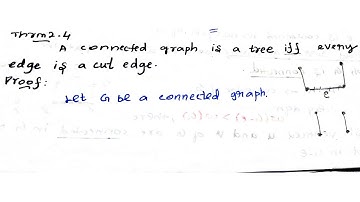 Thrm 2.4
A connected graph is a tree iff every
edge is a cut edge.
Proof:
Let G be a connected graph.
e